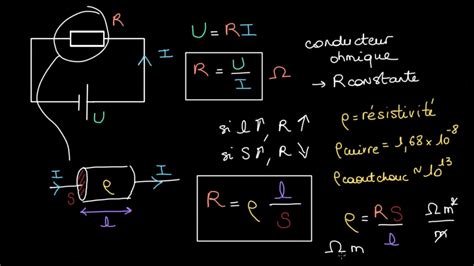 R
I
U
U = RI
R = U/I Ω
conducteur
ohmique
→ R constante
si l ↑, R ↑
si S ↑, R ↓
ρ = résistivité
ρcuivre = 1,68 × 10⁻⁸
ρcaoutchouc ≈ 10¹³
I
ρ
I
S
l
R = ρ l/S
ρ = RS/l Ωm²/m
Ωm